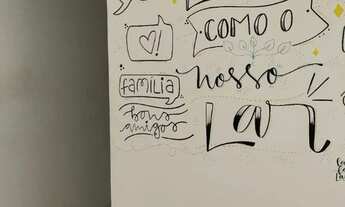 COMO O
nosso
LAR
FAMÍLIA
bons
amigos